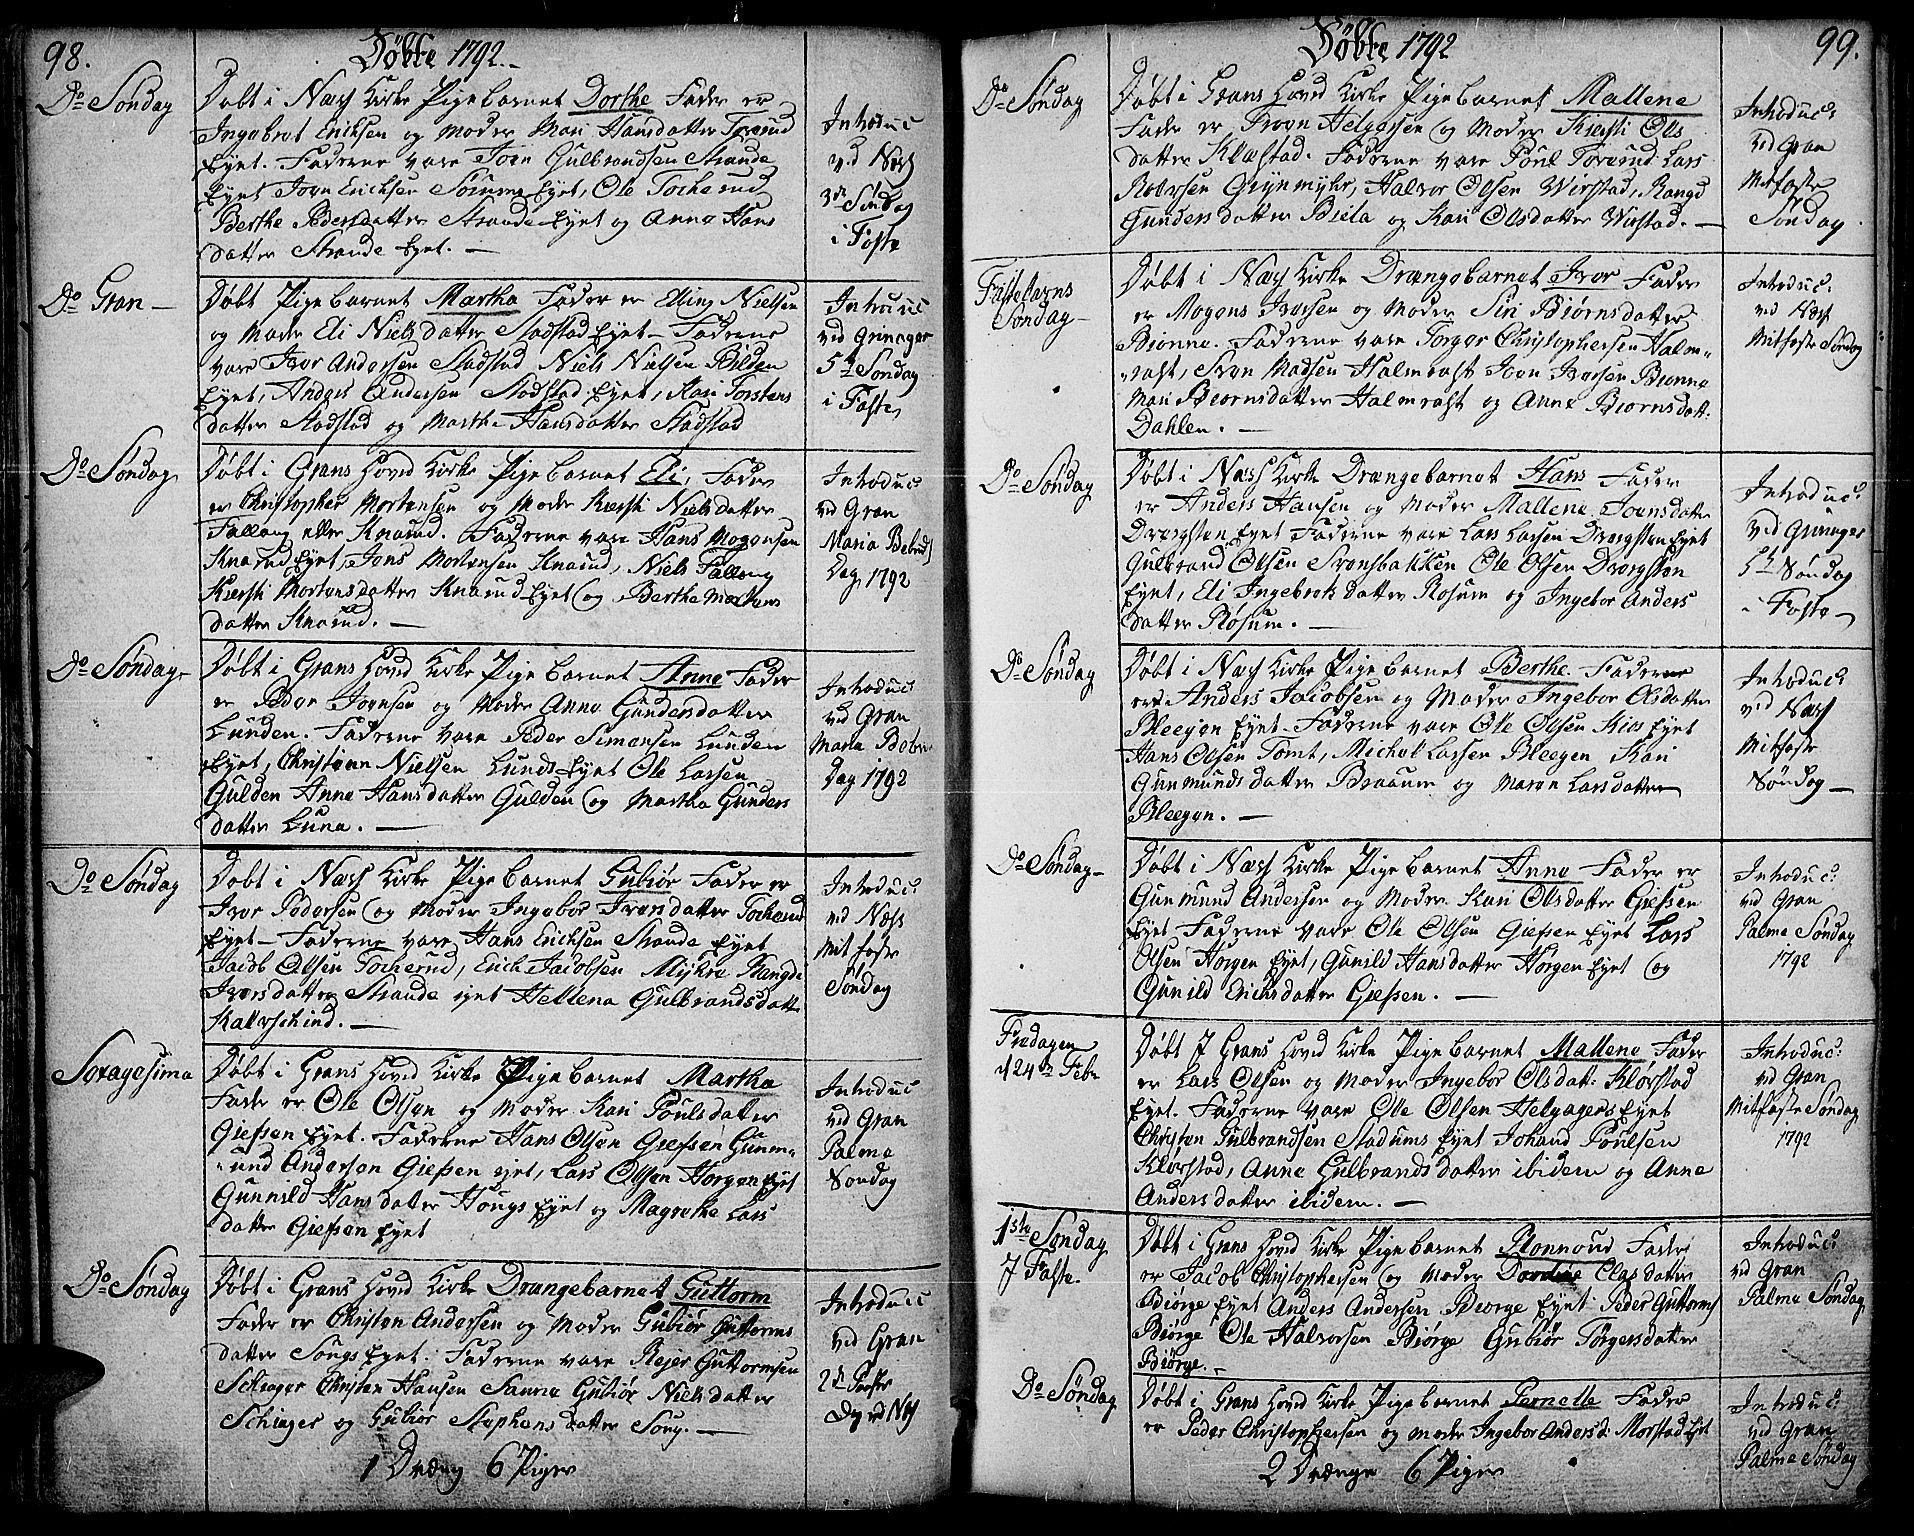 98.
Døbte 1792.
Do Søndag
Døbt i Næss Kirke Pigebarnet Dorthe Fader er
Ingebret Ericksen og Moder Mari Hansdatter
Eyet. Faderne vare Joen Gulbrandsen Strande
Eyet Joen Ericksen Eyet, Ole Tocherud
Berthe Pedersdatter Strande Eyet og Anne Hans
datter Strande Eyet. —
Introduc
vid Næss
3die Søndag
i Faste
Do Gran —
Døbt Pigebarnet Martha Fader er Elling Nielsen
og Moder Eli Nielsdatter Stadstad Eyet — Faderne
vare Iver Andersen Stadstad Niels Nielsen Bilden
Eyet, Anders Andersen Stadstad Eyet, Kari Torstens
datter Stadstad og Marthe Hansdatter Stadstad
Introduc
vid Grinager
5te Søndag
i Faste
Do Søndag
Døbt i Grans Hoved Kirke Pigebarnet Eli, Fader
er Christopher Mortensen og Moder Kiersti Nielsdatter
Fallang eller Knarud. Faderne vare Hans Mogensen
Knarud Eyet, Jens Mortensen Knarud, Niels Fallang
Kiersti Mortensdatter Knarud Eyet og Berthe Mortens
datter Knarud. —
Introduc
vid Gran
Maria Bebud
Dag 1792
Do Søndag
Døbt i Grans Hoved Kirke Pigebarnet Anne Fader
er Peder Joensen og Moder Anne Gundersdatter
Lunden. Faderne vare Peder Simensen Lunden
Eyet, Christian Nielsen Lunds Eyet Ole Larsen
Gulden Anne Hansdatter Gulden og Martha Gunders
datter Luna. —
Introduc
vid Gran
Maria Bebu
Dag 1792
Do Søndag
Døbt i Næss Kirke Pigebarnet Gubiør Fader er
Iver Pedersen og Moder Ingebor Iversdatter Tocherud
Eyet — Faderne vare Hans Ericksen Strande Eyet
Jacob Olsen Tocherud, Erich Jacobsen Myhre Rangdi
Iversdatter Strande eyet Hellena Gulbrandsdatt
Kalvschind. —
Introduc:
vid Næss
Mitfaste
Søndag
Sexagesima
Døbt i Grans Hoved Kirke Pigebarnet Martha
Fader er Ole Olsen og Moder Kari Poulsdatter
Giefsen Eyet. Faderne Hans Olsen Giefsen Gunm=
"und Andersen Giefsen eyet, Lars Olsen Horgen Eyet
Gunnild Hansdatter Hougs Eyet og Magrethe Lars
datter Giefsen Eyet
Introduc
vid Gran
Palme
Søndag
Do Søndag
Døbt i Grans Hoved Kirke Drengebarnet Guttorm
Fader er Christen Andersen og Moder Gubiør Guttorms
datter Songs Eyet. Faderne vare Rejer Guttormsen
Schiager Christen Hansen Sanne Gubiør Nielsdatter
Schiager og Gubiør Stephensdatter Song. —
Introduc
vid Gran
2d Paaske
Dag vid Næs
1 Dreng 6 Piger
99.
Døbte 1792
Do Søndag
Døbt i Grans Hoved Kirke Pigebarnet Mallene
Fader er Iven Helgesen og Moder Kiersti Ols
datter Klæstad. Faderne vare Poul Torerud Lars
Robersen Grynmyhr, Halvor Olsen Wirstad, Rangd
Gundersdatter Biela og Kari Olsdatter Wirstad. —
Introduc:
vid Gran
Mitfaste
Søndag
Fastelavns
Søndag —
Døbt i Næss Kirke Drengebarnet Iver Fader
er Mogens Iversen og Moder Siri Biørnsdatter
Biønne. Faderne vare Torger Christophersen Halm=
"rast, Iven Madsen Halmrast Joen Iversen Biønne
Mari Biørnsdatter Halmrast og Anne Biørnsdatt.
Dahlen. —
Introduc:
vid Næss
Mitfaste Søndag
Do Søndag
Døbt i Næss Kirke Drengebarnet Hans Fader
er Anders Hansen og Moder Mallene Joensdatter
Dvergsten Eyet Faderne vare Lars Larsen Dvergsten Eyet
Gulbrand Olsen Svensbakken Ole Olsen Dvergsten
Eyet, Eli Ingebretsdatter Rosum og Ingebor Anders
datter Røsum. —
Introduc:
vid Grinager
5te Søndag
i Faste —
Do Søndag
Døbt i Næss Kirke Pigebarnet Berthe. Faderne
er Anders Jacobsen og Moder Ingebor Olsdatter
Bleegen Eyet. Faderne vare Ole Olsen Kios Eyet
Hans Olsen Tomt, Michel Larsen Bleegen Kari
Gunmundsdatter Braaum og Maren Larsdatter
Bleegen. —
Introduc:
vid Næss
Mitfaste
Søndag —
Do Søndag —
Døbt i Næss Kirke Pigebarnet Anne Fader er
Gunmund Andersen og Moder Kari Olsdatter Giefsen
Eyet Faderne vare Ole Olsen Giefsen Eyet Lars
Olsen Horgen Eyet, Gunild Hansdatter Horgen Eyet og
Gunild Erichsdatter Giefsen. —
Introduc:
vid Gran
Palme Søndag
1792
Fredagen
d 24de Febr
Døbt I Grans Hoved Kirke Pigebarnet Mallene Fader
er Lars Olsen og Moder Ingebor Olsdatt: Klørstad
Eyet. Faderne vare Ole Olsen Helgagers Eyet
Christen Gulbrandsen Stadums Eyet Johand Poulsen
Klørstad, Anne Gulbrandsdatter ibidem og Anne
Andersdatter ibidem. —
Introduc:
vid Gran
Mitfaste Søndag
1792
1ste Søndag
I Faste.
Døbt i Grans Hoved Kirke Pigebarnet Ronnoug Fader
er Jacob Christophersen og Moder Dordine Clasdatter
Biørge Eyet Anders Andersen Biørge Eyet. Peder Guttorms
Biørge Ole Halvorsen Biørge Gubiør Torgersdatter
Biørge. —
Introduc:
vid Gran
Palme Søndag
Do Søndag
Døbt i Grans Hoved Kirke Pigebarnet Pernelle Fader
er Peder Christophersen og Moder Ingebor Andersd: Morstad Eyet
Introduc:
vid Gran
Palme Søndag
2 Drenge 6 Piger